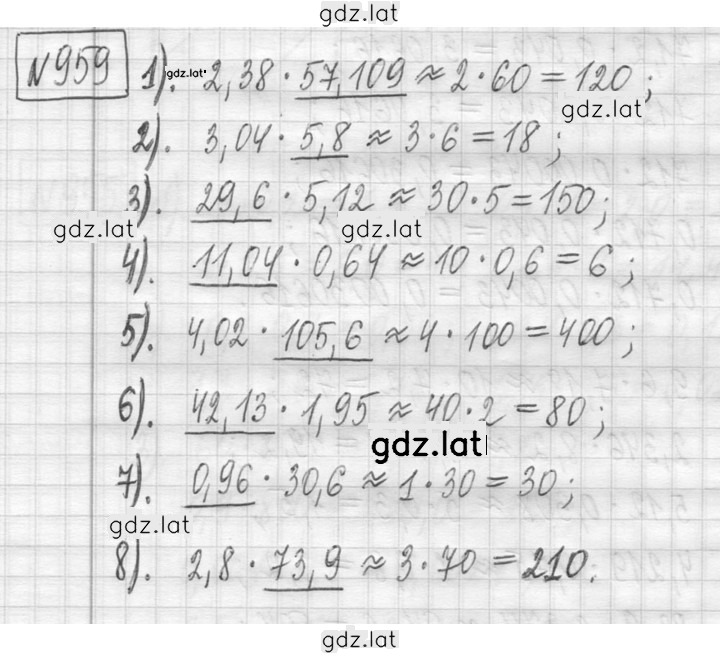 gdz.lat
№959 1). gdz.lat 2,38 · 57,109 ≈ 2 · 60 = 120;
gdz.lat
2). 3,04 · 5,8 ≈ 3 · 6 = 18;
3). 29,6 · 5,12 ≈ 30 · 5 = 150;
gdz.lat gdz.lat
4). 11,04 · 0,64 ≈ 10 · 0,6 = 6;
5). 4,02 · 105,6 ≈ 4 · 100 = 400;
6). 42,13 · 1,95 ≈ 40 · 2 = 80;
gdz.lat
7). 0,96 · 30,6 ≈ 1 · 30 = 30;
gdz.lat
8). 2,8 · 73,9 ≈ 3 · 70 = 210.
gdz.lat